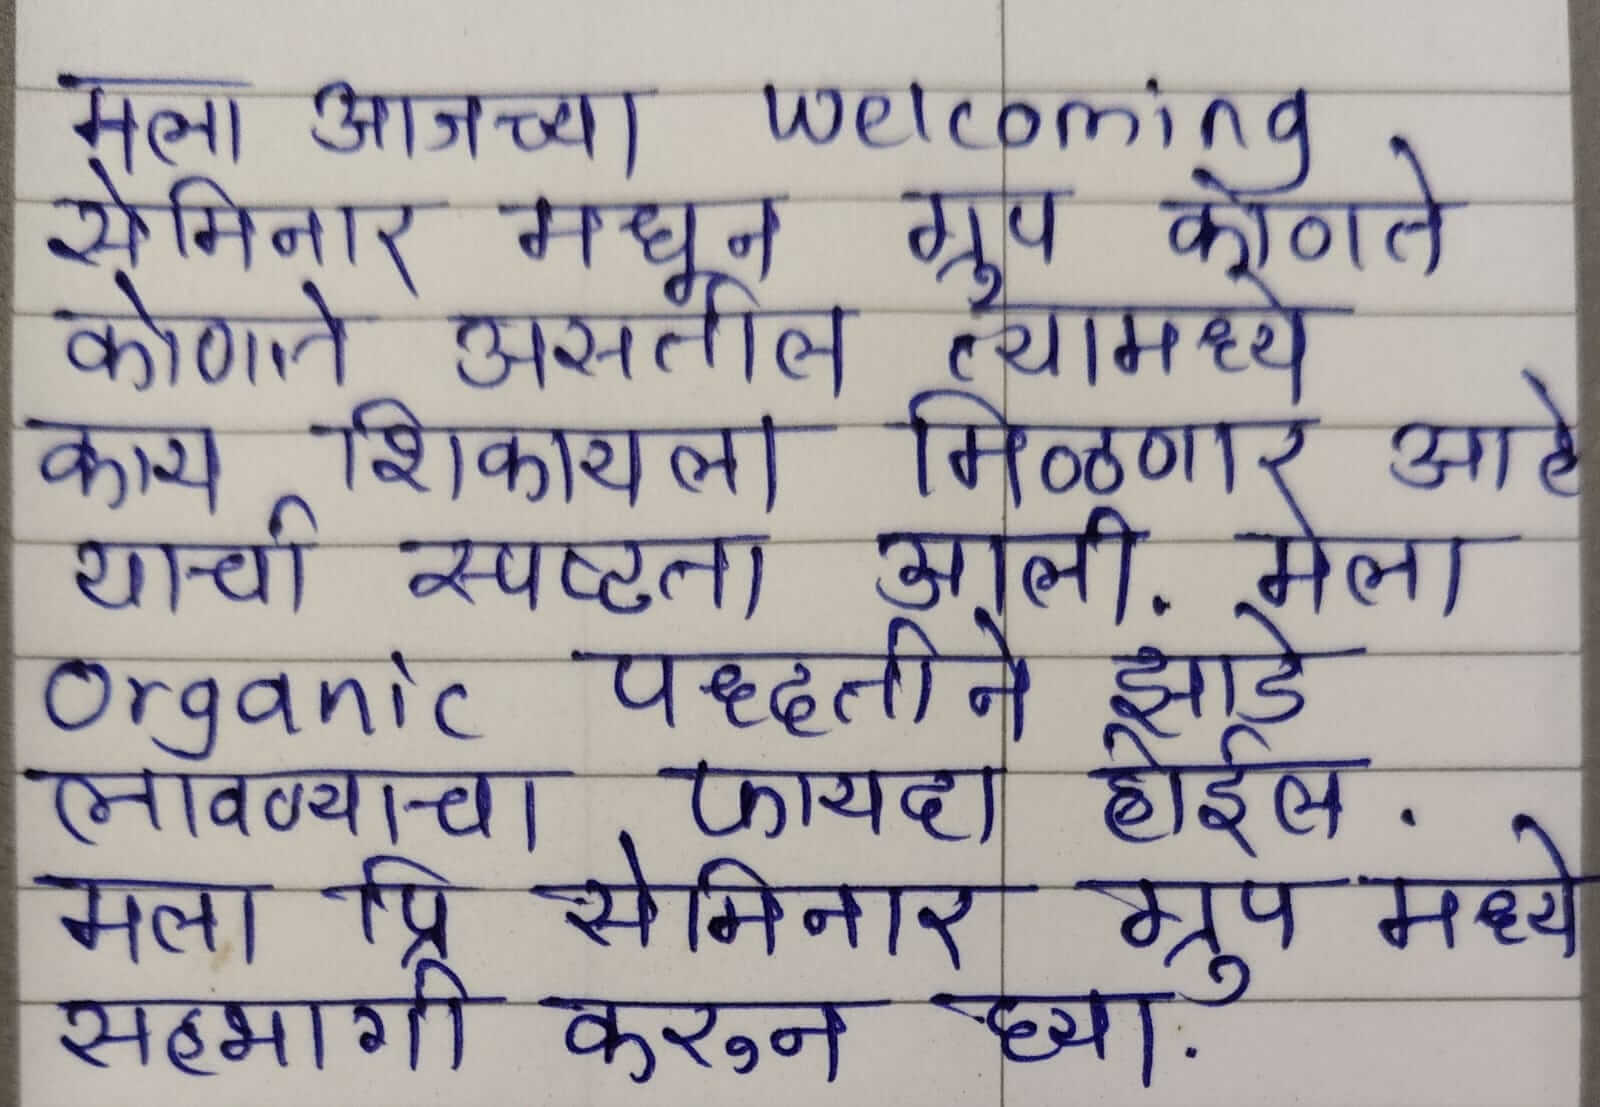 मला आजच्या welcoming
सेमिनार मधून ग्रुप कोणते
कोणते असतील त्यामध्ये
काय शिकायला मिळणार आहे
याची स्पष्टता आली. मला
organic पध्दतीने झाडे
लावण्याचा फायदा होईल.
मला प्रि सेमिनार ग्रुप मध्ये
सहभागी करुन घ्या.